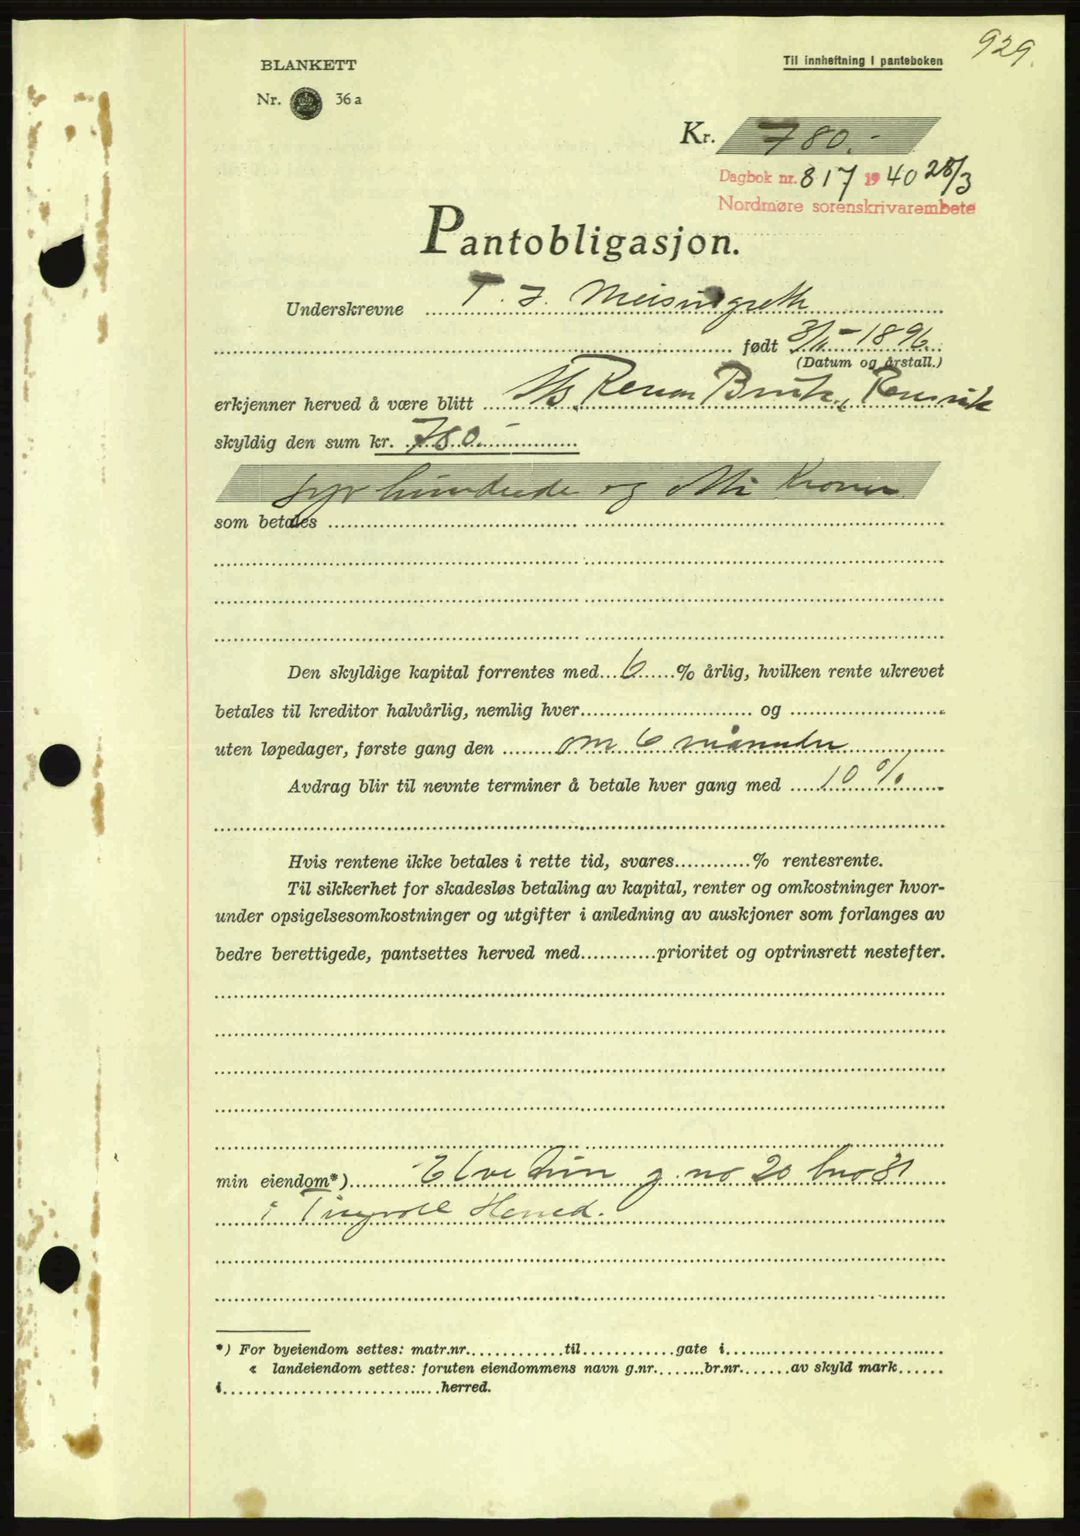 929.
BLANKETT
Til innheftning i panteboken
Nr. 36 a
Kr. 780.-
Dagbok nr. 817 1940 28/3
Nordmøre sorenskrivarembete
Pantobligasjon.
Underskrevne T. J. Meisingseth
født 3/11-1896
(Datum og årstall.)
erkjenner herved å være blitt Bruk, Rensvik
skyldig den sum kr. 780.-
syv hundrede og otti Kroner
som betales
Den skyldige kapital forrentes med 6 % årlig, hvilken rente ukrevet
betales til kreditor halvårlig, nemlig hver og
uten løpedager, første gang den om 6 måneder
Avdrag blir til nevnte terminer å betale hver gang med 10 %
Hvis rentene ikke betales i rette tid, svares % rentesrente.
Til sikkerhet for skadesløs betaling av kapital, renter og omkostninger hvor-
under opsigelsesomkostninger og utgifter i anledning av auskjoner som forlanges av
bedre berettigede, pantsettes herved med prioritet og optrinsrett nestefter.
min eiendom*) g. no 20 bno 81
i Tingvoll Herred.
*) For byeiendom settes: matr.nr. til gate i
« landeiendom settes: foruten eiendommens navn g.nr. br.nr. av skyld mark
i herred.